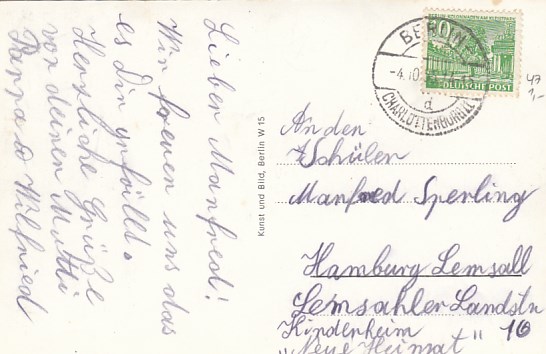 Lieber Manfred!
Wir freuen uns das
es Dir gefällt.
Herzliche Grüße
von deiner Mutti
Pappa u Wilfried
Kunst und Bild, Berlin W 15
BERLIN
-4.10.
d
CHARLOTTENBURG
DEUTSCHE POST
47
1,-
An den
Schüler
Manfred Sperling
Hamburg Lemsall
Lemsahler Landstr
Kinderheim 16
"Neue Heimat"